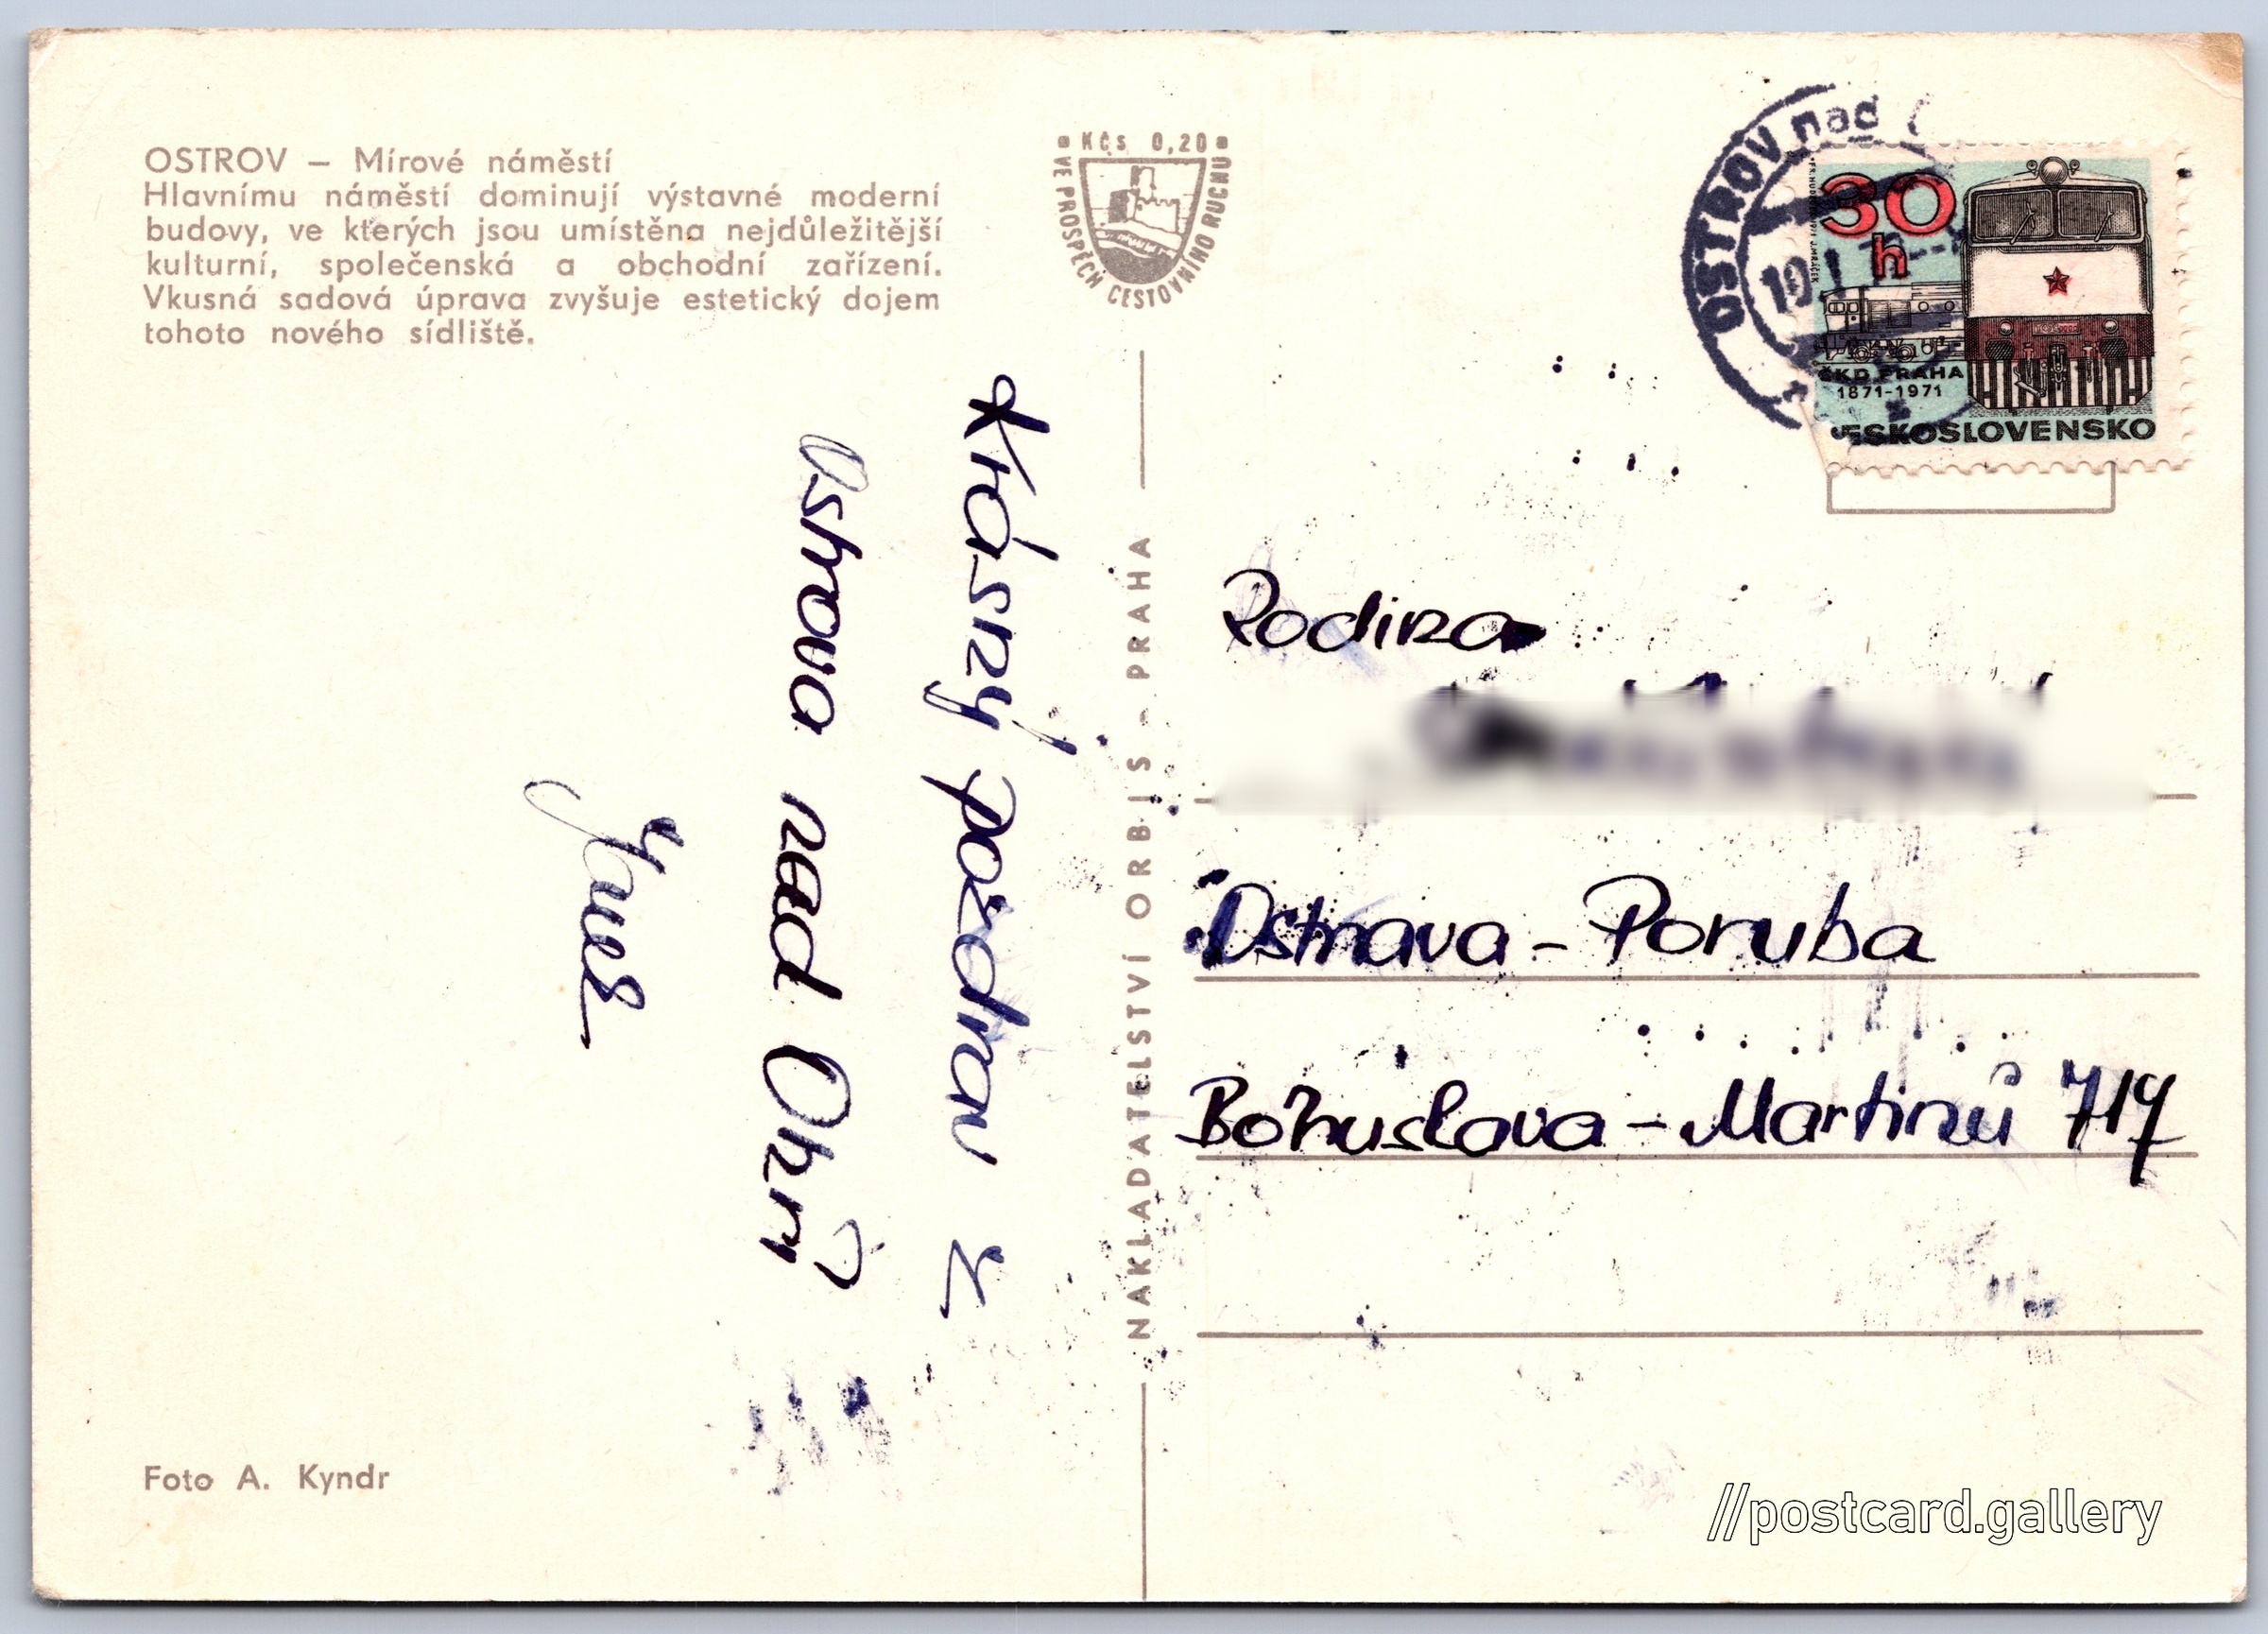 OSTROV – Mírové náměstí
Hlavnímu náměstí dominují výstavné moderní
budovy, ve kterých jsou umístěna nejdůležitější
kulturní, společenská a obchodní zařízení.
Vkusná sadová úprava zvyšuje estetický dojem
tohoto nového sídliště.
Kčs 0,20
VE PROSPĚCH CESTOVNÍHO RUCHU
OSTROV nad
30
h
ČKD PRAHA
1871-1971
ČESKOSLOVENSKO
Krásný pozdrav z
Ostrova nad Ohří
NAKLADATELSTVÍ ORBIS - PRAHA
Rodina
Ostrava - Poruba
Bohuslava - Martinů 717
Foto A. Kyndr
//postcard.gallery